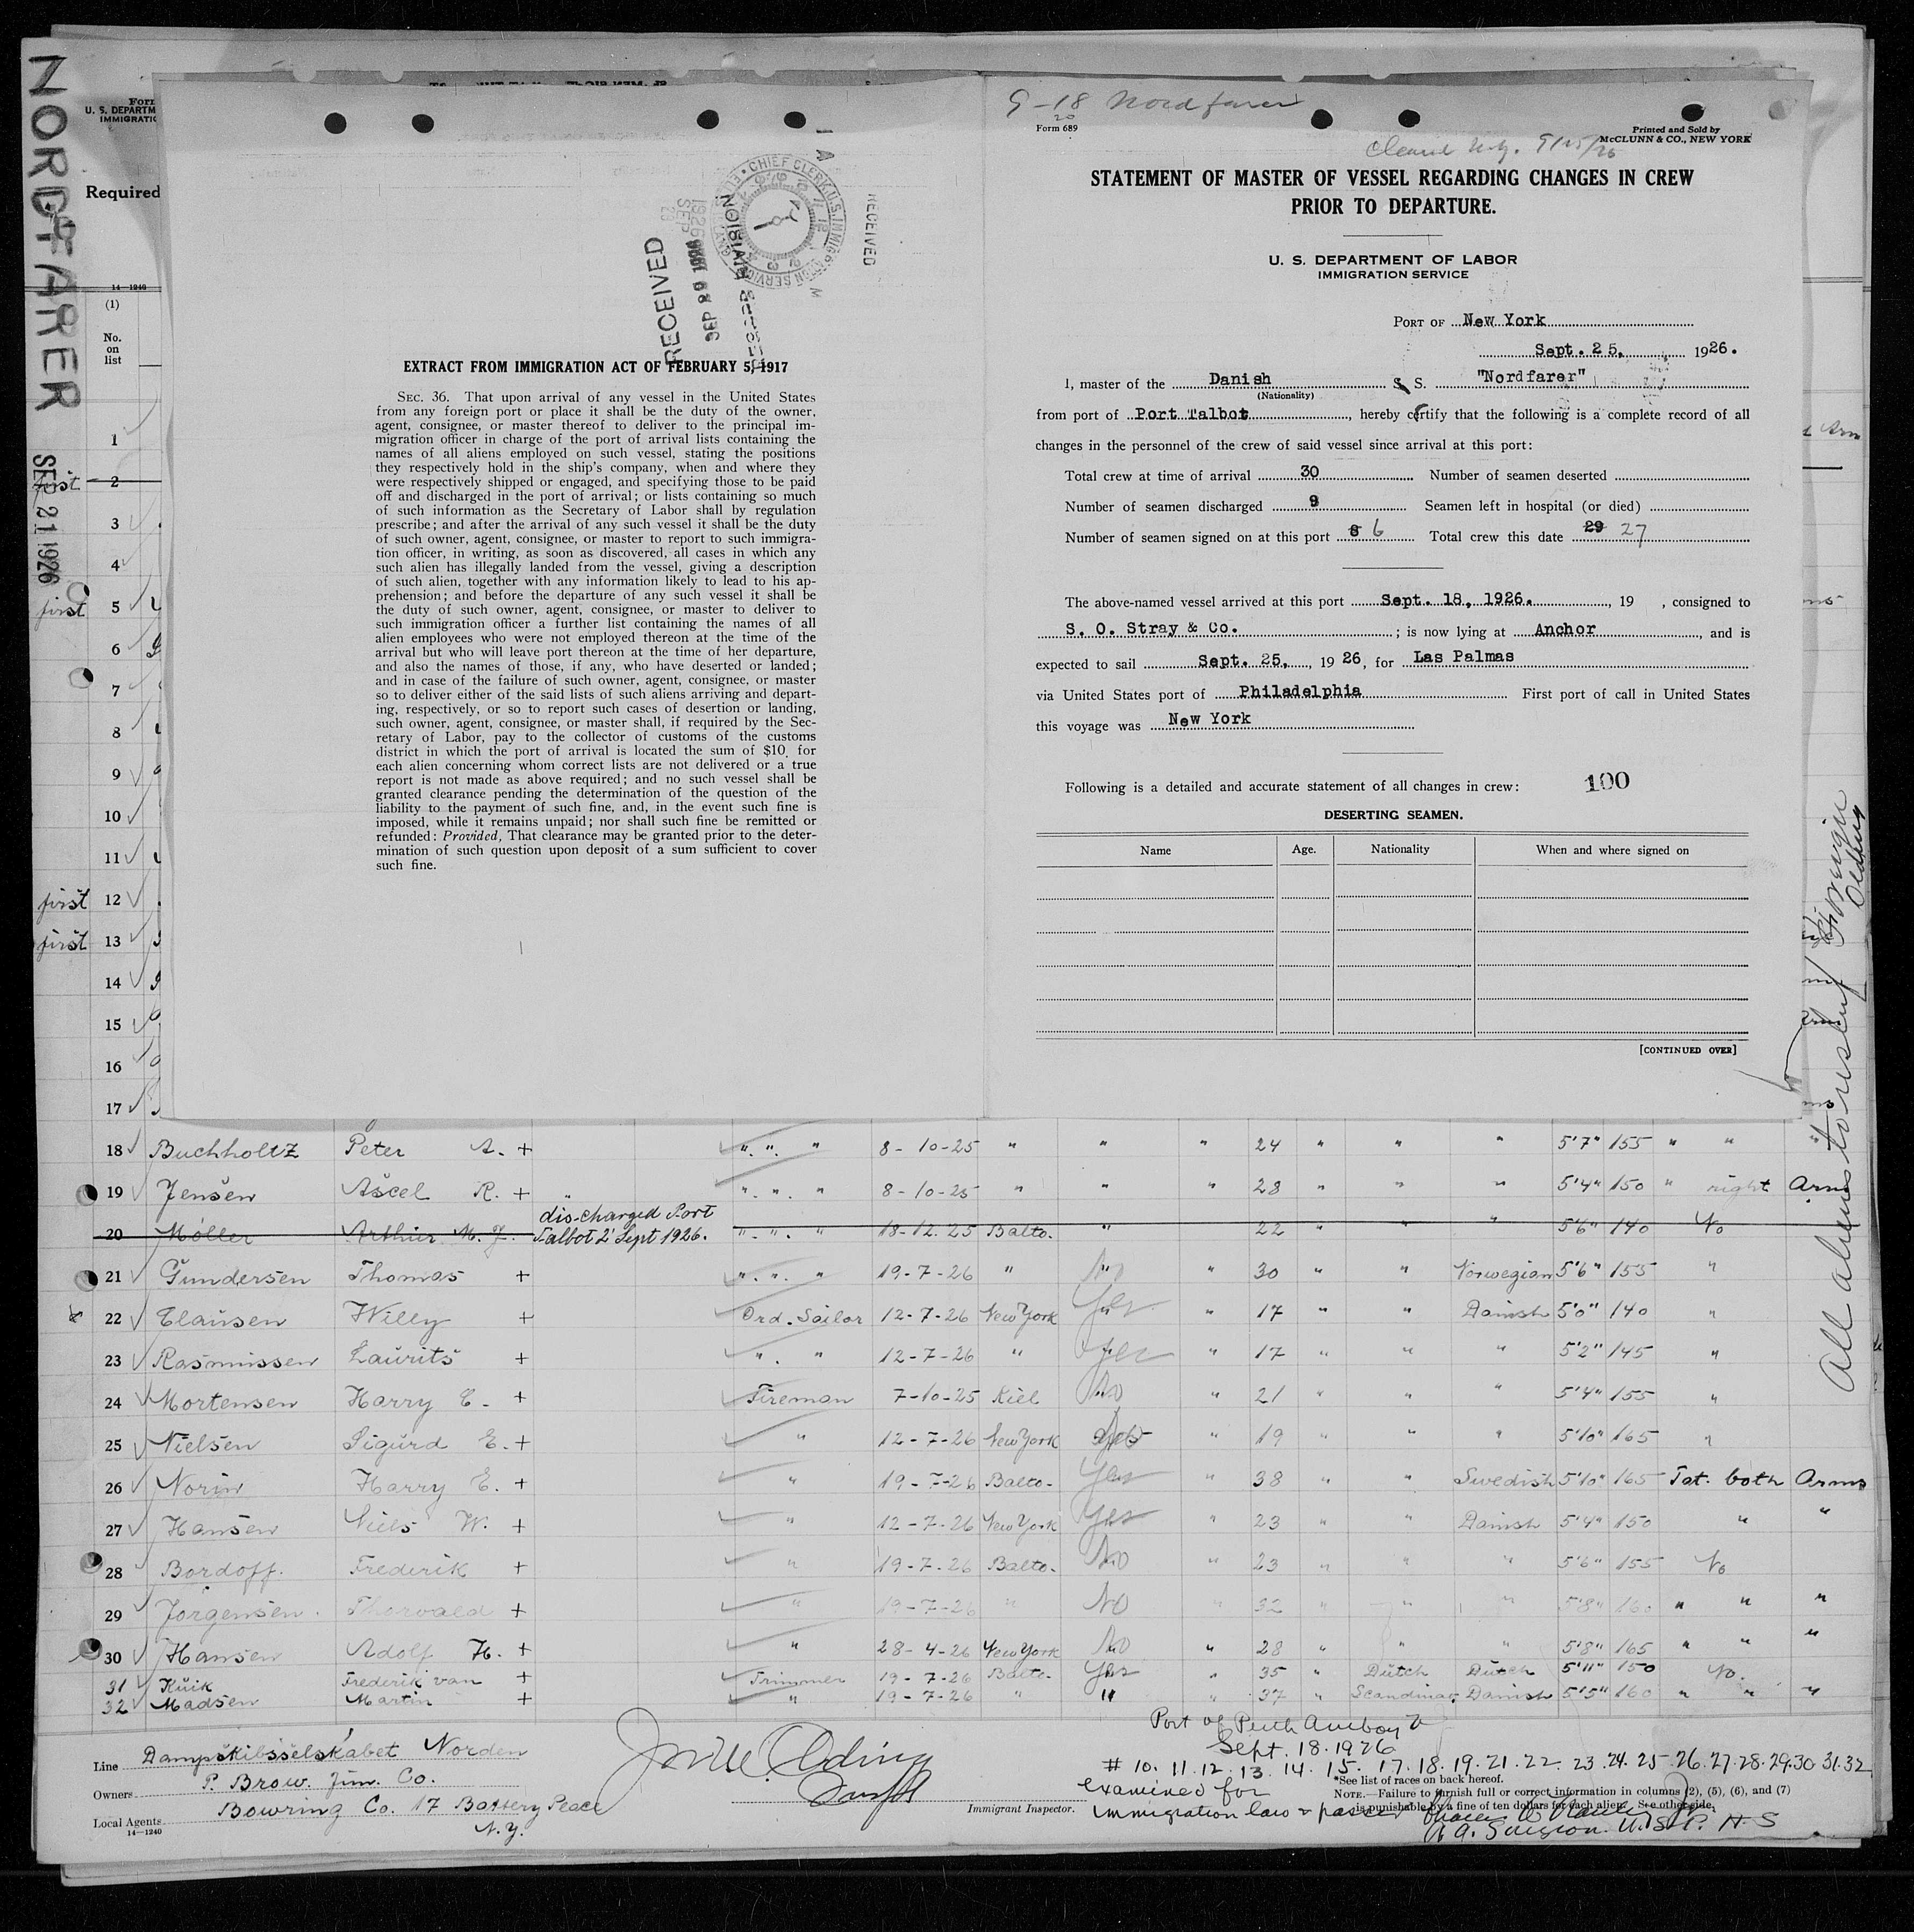 NORDFARER SEP 21 1926
Form
U. S. DEPARTM
IMMIGRATIC
Required
14—1240
(1)
No.
on
list
1
first 2
3
4
first 5
6
7
8
9
10
11
first 12
first 13
14
15
16
17
RECEIVED
SEP 29 1926
RECEIVED
EXTRACT FROM IMMIGRATION ACT OF FEBRUARY 5, 1917
SEC. 36. That upon arrival of any vessel in the United States
from any foreign port or place it shall be the duty of the owner,
agent, consignee, or master thereof to deliver to the principal im-
migration officer in charge of the port of arrival lists containing the
names of all aliens employed on such vessel, stating the positions
they respectively hold in the ship's company, when and where they
were respectively shipped or engaged, and specifying those to be paid
off and discharged in the port of arrival; or lists containing so much
of such information as the Secretary of Labor shall by regulation
prescribe; and after the arrival of any such vessel it shall be the duty
of such owner, agent, consignee, or master to report to such immigra-
tion officer, in writing, as soon as discovered, all cases in which any
such alien has illegally landed from the vessel, giving a description
of such alien, together with any information likely to lead to his ap-
prehension; and before the departure of any such vessel it shall be
the duty of such owner, agent, consignee, or master to deliver to
such immigration officer a further list containing the names of all
alien employees who were not employed thereon at the time of the
arrival but who will leave port thereon at the time of her departure,
and also the names of those, if any, who have deserted or landed;
and in case of the failure of such owner, agent, consignee, or master
so to deliver either of the said lists of such aliens arriving and depart-
ing, respectively, or so to report such cases of desertion or landing,
such owner, agent, consignee, or master shall, if required by the Sec-
retary of Labor, pay to the collector of customs of the customs
district in which the port of arrival is located the sum of $10 for
each alien concerning whom correct lists are not delivered or a true
report is not made as above required; and no such vessel shall be
granted clearance pending the determination of the question of the
liability to the payment of such fine, and, in the event such fine is
imposed, while it remains unpaid; nor shall such fine be remitted or
refunded: Provided, That clearance may be granted prior to the deter-
mination of such question upon deposit of a sum sufficient to cover
such fine.
9-18 Nordfarer
20
Form 689
Printed and Sold by
McCLUNN & CO., NEW YORK
Cleared N.Y. 9/25/26
STATEMENT OF MASTER OF VESSEL REGARDING CHANGES IN CREW
PRIOR TO DEPARTURE.
U. S. DEPARTMENT OF LABOR
IMMIGRATION SERVICE
PORT OF New York
Sept. 25, 1926.
I, master of the Danish S. S. "Nordfarer"
(Nationality)
from port of Port Talbot, hereby certify that the following is a complete record of all
changes in the personnel of the crew of said vessel since arrival at this port:
Total crew at time of arrival 30 Number of seamen deserted
Number of seamen discharged 9 Seamen left in hospital (or died)
Number of seamen signed on at this port 8 6 Total crew this date 29 27
The above-named vessel arrived at this port Sept. 18, 1926., 19 , consigned to
S. O. Stray & Co. ; is now lying at Anchor, and is
expected to sail Sept. 25, 1926, for Las Palmas
via United States port of Philadelphia First port of call in United States
this voyage was New York
Following is a detailed and accurate statement of all changes in crew: 100
DESERTING SEAMEN.
Name Age. Nationality When and where signed on
[CONTINUED OVER]
18 Buchholtz Peter A. + " " " 8-10-25 " " " 24 " " " 5'7" 155 " " "
19 Jensen Ascel R. + " " " " 8-10-25 " " " 28 " " " 5'4" 150 " right Arm
discharged Port
20 Möller Arthur M. J. Talbot 2' Sept 1926. " " " 18-12-25 Balto. " 22 " 5'6" 140 No
21 Gundersen Thomas + " " " 19-7-26 " No " 30 " " Norwegian 5'6" 155 "
22 Clausen Willy + Ord. Sailor 12-7-26 New York Yes " 17 " " Danish 5'0" 140 "
23 Rasmussen Laurits + " " 12-7-26 " Yes " 17 " " " 5'2" 145 "
24 Mortensen Harry E. + Fireman 7-10-25 Kiel No " 21 " " " 5'4" 155 "
25 Nielsen Sigurd E. + " 12-7-26 New York " 19 " " " 5'10" 165 "
26 Norin Harry E. + " 19-7-26 Balto. Yes " 38 " " Swedish 5'10" 165 Tat. both Arms
27 Hansen Niels W. + " 12-7-26 New York Yes " 23 " " Danish 5'4" 150 " "
28 Bordoff. Frederik + " 19-7-26 Balto. No " 23 " " " 5'6" 155 No
29 Jorgensen. Thorvald + " 19-7-26 " No " 32 " " " 5'8" 160 " " "
30 Hansen Adolf H. + " 28-4-26 New York No " 28 " " " 5'8" 165 " " "
31 Kuik Frederik van + Trimmer 19-7-26 Balto. Yes " 35 " Dutch Dutch 5'11" 150 No.
32 Madsen Martin + " 19-7-26 " " " 37 " Scandinav. Danish 5'5" 160 " " "
All aliens to
Line Dampskibsselskabet Norden
Owners P. Brow. Jun. Co.
Local Agents Bowring Co. 17 Battery Place
14—1240 N.Y.
Immigrant Inspector.
Port of Perth Amboy
Sept. 18. 1926
# 10. 11. 12. 13. 14. 15. 17. 18. 19. 21. 22. 23. 24. 25. 26. 27. 28. 29. 30 31. 32
examined for
immigration law & passed
*See list of races on back hereof.
NOTE.—Failure to furnish full or correct information in columns (2), (5), (6), and (7)
is punishable by a fine of ten dollars for each alien. See other side.
A. A. Surgeon. U. S. P. H. S